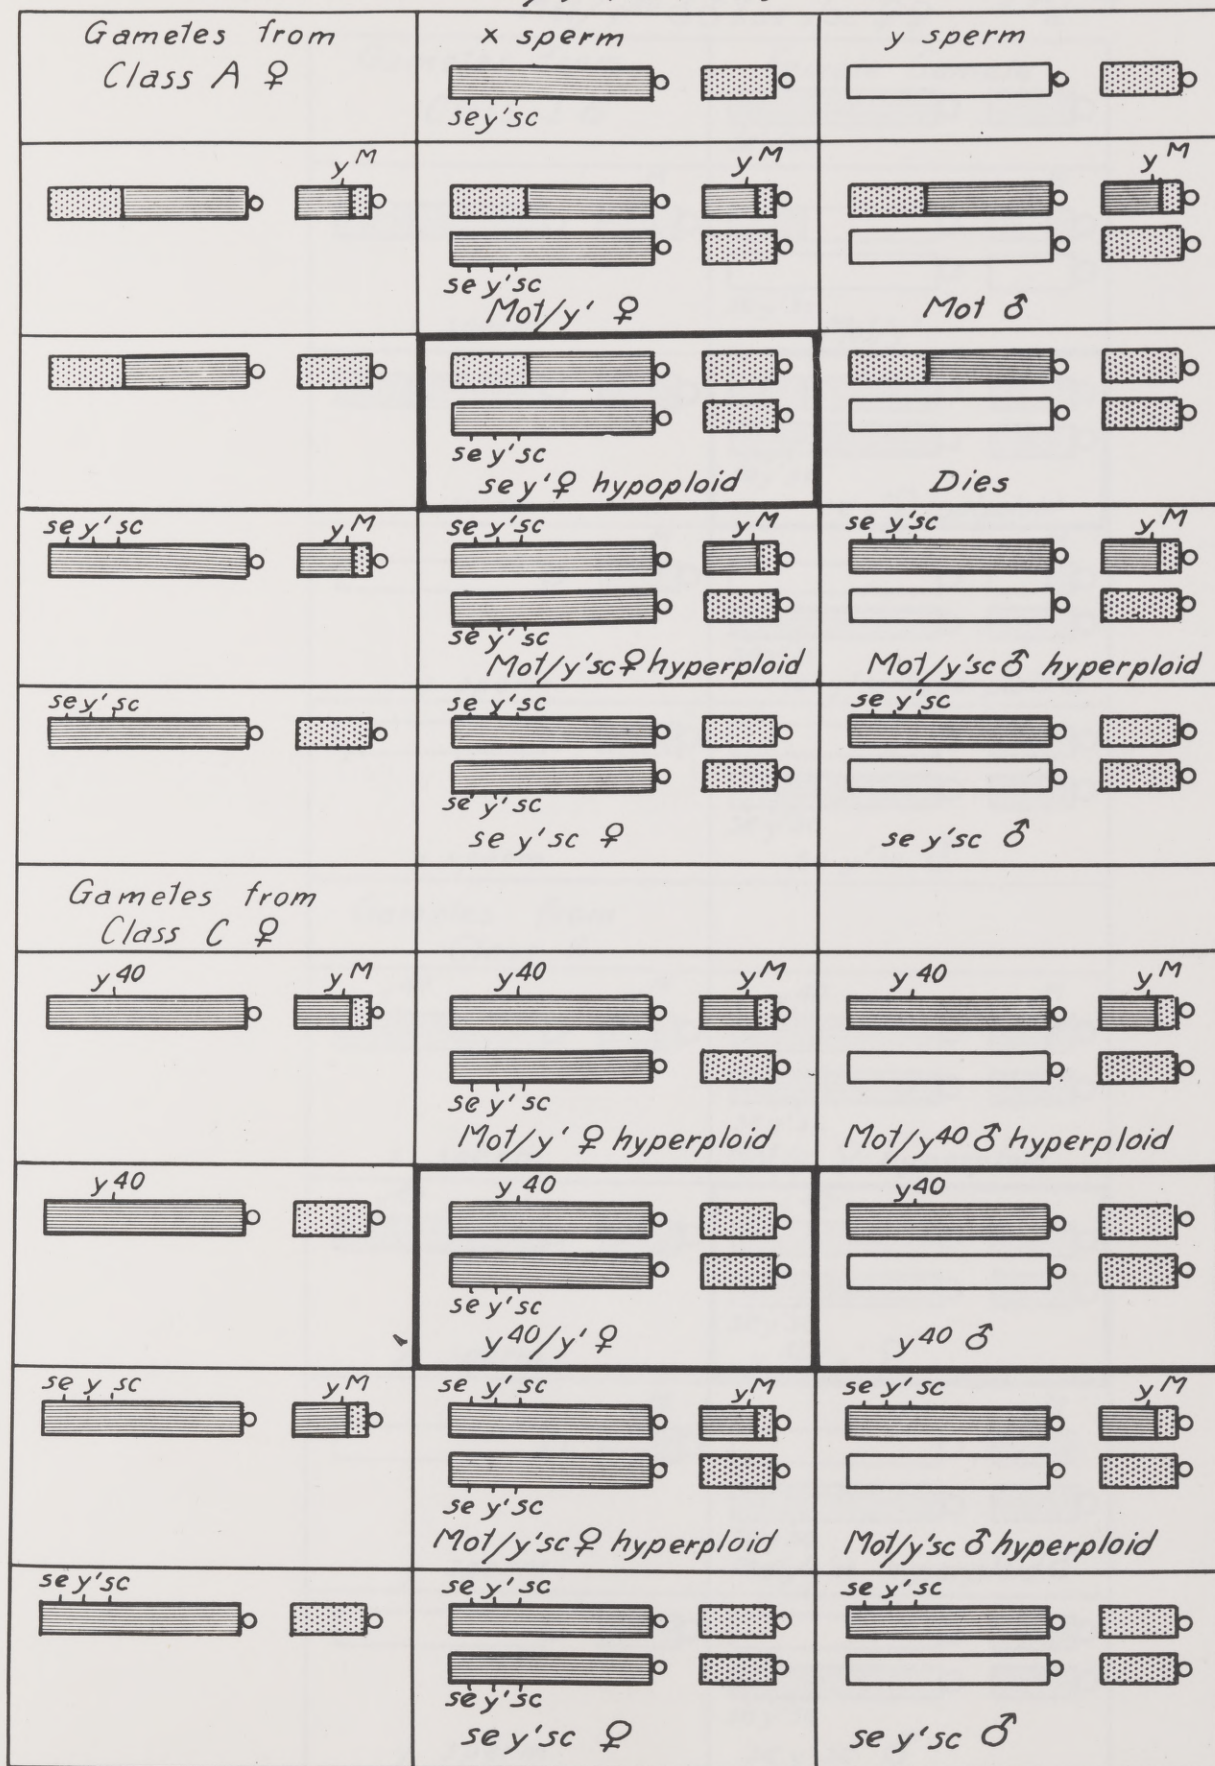 Gametes from
Class A ♀
x sperm
se y' sc
y sperm
y M
y M
se y' sc
Mot/y' ♀
y M
Mot ♂
se y' sc
se y' ♀ hypoploid
Dies
se y' sc
y M
se y' sc
y M
se y' sc
Mot/y'sc ♀ hyperploid
se y' sc
y M
Mot/y'sc ♂ hyperploid
se y' sc
se y' sc
se y' sc
se y'sc ♀
se y' sc
se y'sc ♂
Gametes from
Class C ♀
y 40
y M
y 40
y M
se y' sc
Mot/y' ♀ hyperploid
y 40
y M
Mot/y40 ♂ hyperploid
y 40
y 40
se y' sc
y40/y' ♀
y40
y40 ♂
se y sc
y M
se y' sc
y M
se y' sc
Mot/y'sc ♀ hyperploid
se y' sc
y M
Mot/y'sc ♂ hyperploid
se y'sc
se y' sc
se y'sc
se y'sc ♀
se y' sc
se y'sc ♂